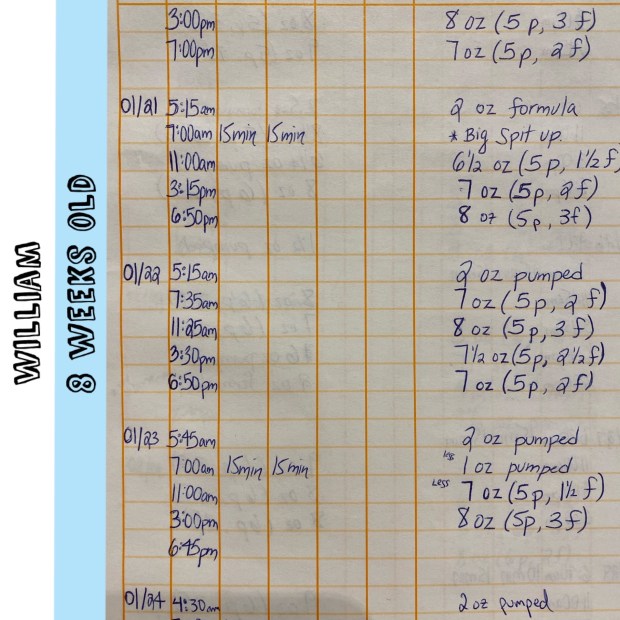 WILLIAM
8 WEEKS OLD
3:00pm 8 oz (5 p, 3 f)
7:00pm 7 oz (5 p, 2 f)
01/21 5:15am 2 oz formula
7:00am 15min 15min * Big Spit up.
11:00am 6 1/2 oz (5 p, 1 1/2 f
3:15pm 7 oz (5p, 2f)
6:50pm 8 oz (5p, 3f)
01/22 5:15am 2 oz pumped
7:35am 7 oz (5p, 2 f)
11:25am 8 oz (5p, 3 f)
3:30pm 7 1/2 oz (5p, 2 1/2 f)
6:50pm 7 oz (5p, 2f)
01/23 5:45am 2 oz pumped
7:00am 15min 15min less 1 oz pumped
11:00am Less 7 oz (5p, 1 1/2 f)
3:00pm 8 oz (5p, 3f)
6:45pm
01/24 4:30am 2 oz pumped